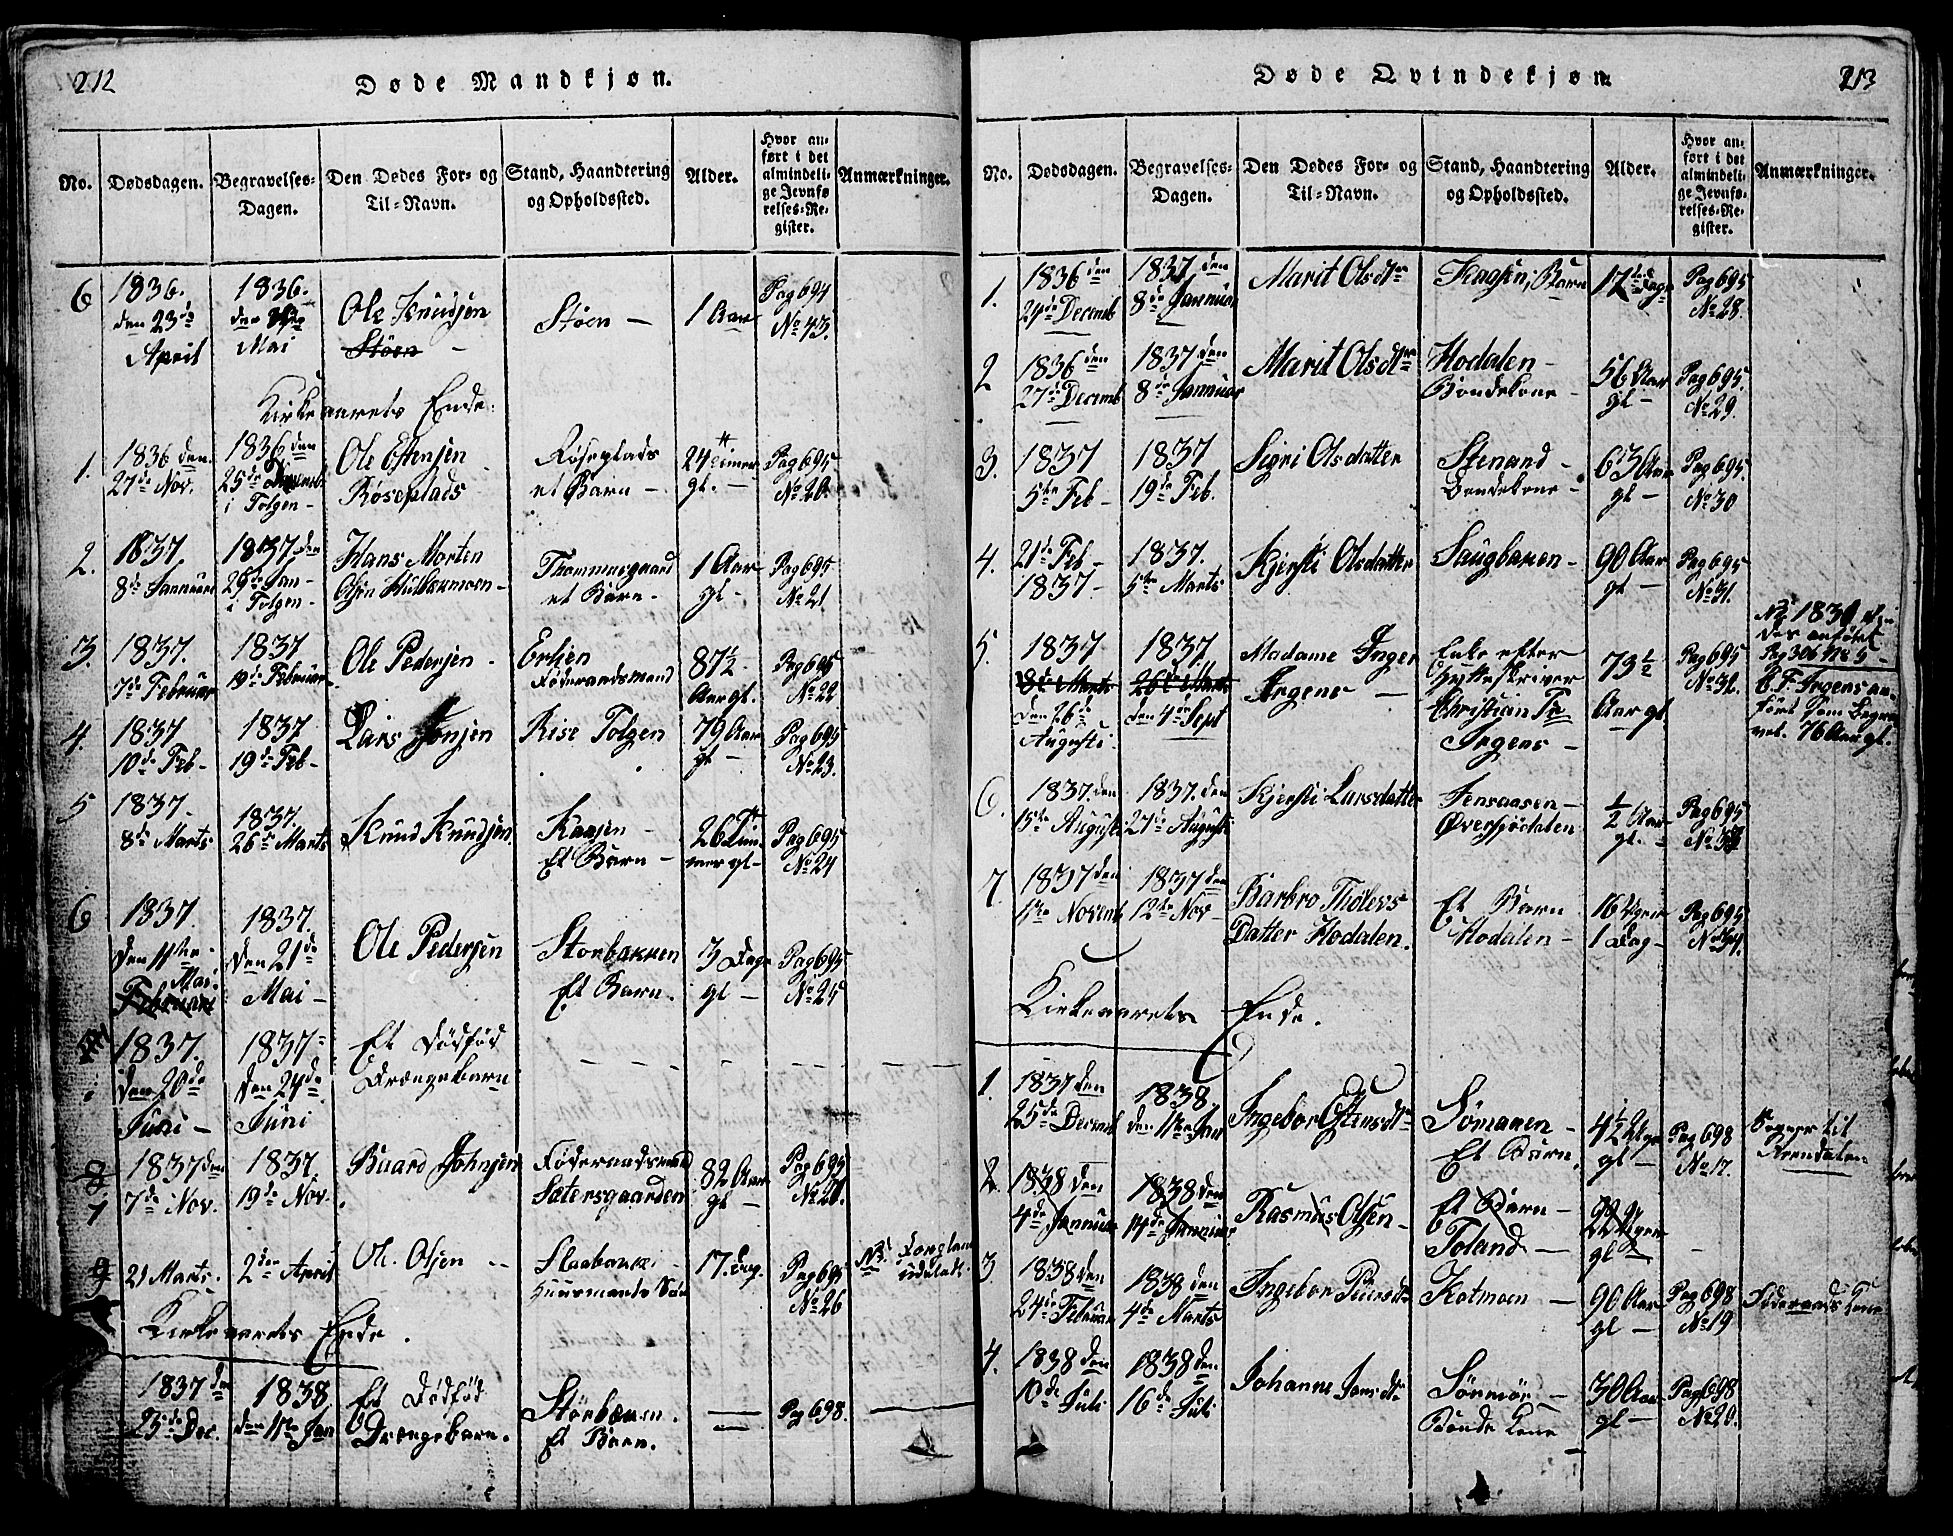 212
Døde Mandkjøn.
No.
Dødsdagen.
Begravelses-
Dagen.
Den Dødes For- og
Til-Navn.
Stand, Haandtering
og Opholdssted.
Alder.
Hvor an-
ført i det
almindeli-
ge Jevnfø
relses-Re-
gister.
Anmærkninger.
6
1836.
den 23de
April
1836.
den
Mai
Ole Knudsen
Støen
Støen —
1 Aar
Pag 694
No 43.
Kirkeaarets Ende.
1.
1836 den
27de Nov.
1836 den
25de
i Tolgen —
Ole Estensen
Røseplads
Røseplads
et Barn —
24 Timer
gl. —
Pag 695
No 20.
2.
1837.
8de Januar
1837 den
29de Jan —
i Tolgen —
Hans Morten
Olsen
et Barn —
1 Aar
gl —
Pag 695
No 21
3.
1837.
7de Februar
1837
19de Februar
Ole Pedersen
Føderaadsmand
87½
Aar gl.
Pag 695
No 22
4.
1837
10de Feb —
1837
19de Feb —
Lars Jonsen
Rise Tolgen
79 Aar
gl —
Pag 695
No 23.
5
1837.
8de Marts
1837.
26de Marts
Knud Knudsen
Et Barn —
26 Tim
mer gl —
Pag 695
No 24
6
1837.
den 11te
Mai.
Februar
1837.
den 21de
Mai —
Ole Pedersen
Storbakken
Et Barn.
3 Dage
gl —
Pag 695
No 25
1837.
den 20de
Juni —
1837
den 24de
Juni
Et Dødfød
Drengebarn
8
7
1837 den
7de Nov.
1837.
19de Nov.
Baard Johnsen
Føderaadsmand
Sætersgaarden
82 Aar
gl —
Pag 695
9
21 Marts.
2den April
Ole Olsen
Huusmands Søn
17. Dag.
Pag 695
No 26
NB.
udeladt.
Kirkeaarets Ende.
1837 den
23de Dec.
1838
den 1ste Jan
Et Dødfød
Drengebarn.
Et Barn.
Pag 698.
213
Døde Qvindekjøn
No.
Dødsdagen.
Begravelses-
Dagen.
Den Dødes For- og
Til-Navn.
Stand, Haandtering
og Opholdssted.
Alder.
Hvor an-
ført i det
almindeli-
ge Jevnfø-
relses-Re-
gister.
Anmærkninger.
1.
1836 den
24de Decemb
1837 den
8de Januar
Marit Olsdtr
Barn
17 Dage
Pag 695
No 28.
2
1836 den
27de Decemb
1837 den
8de Januar
Marit Olsdtr
Hodalen —
Bondekone —
56 Aar
gl —
Pag 695
No 29.
3.
1837
5te Feb —
1837
19de Feb.
Sigri Olsdatter
Stenand —
Bondekone —
63 Aar
gl —
Pag 695
No 30
4.
21de Feb —
1837 —
1837.
5te Marts
Kjersti Olsdatter
Haugbakken —
90 Aar
gl —
Pag 695
No 31.
5.
1837
8de Marts
den 26de
Augusti
1837.
26de Marts
den 4de Sept
Madame Inger
Irgens —
Enke efter
Hytteskriver
Christian Fr
Irgens —
73½
Aar gl.
Pag 695
No 32.
Pag 306 No 5 —
C. F. Irgens an-
ført som begra-
vet. 76 Aar gl.
6.
1837. den
15de Augusti
1837. den
27de Augusti
Kjersti Larsdatter
Jensaasen —
Øversjødalen
½ Aar
gl. —
Pag 695
7.
1837 den
1ste Novemb
1837 den
12te Nov —
Barbro Thølevs
Datter Hodalen.
Et Barn
Hodalen —
16 Uger
1 Dag —
Pag 695
No 34.
Kirkeaarets Ende.
1.
1837 den
25de Decemb
1838.
den 1ste Jan
Ingebor Estensdtr
Sømaaen —
Et Barn.
4½ Uger
gl —
Pag 698
No 17.
2.
1838 den
4de Januar
1838 den
14de Januar
Rasmus Olsen —
Et Barn —
Toland —
gl
3
1838 den
24de Februar
1838 den
4de Marts
Ingebor
Kotmoen —
90 Aar
gl —
Pag 698
No 19
Føderaads Kone
4.
1838 den
10de Juli
1838 den
16de Juli
Johanne Jonsdtr
Sørmøe —
Bonde Kone
30 Aar
gl —
Pag 698
No 20.